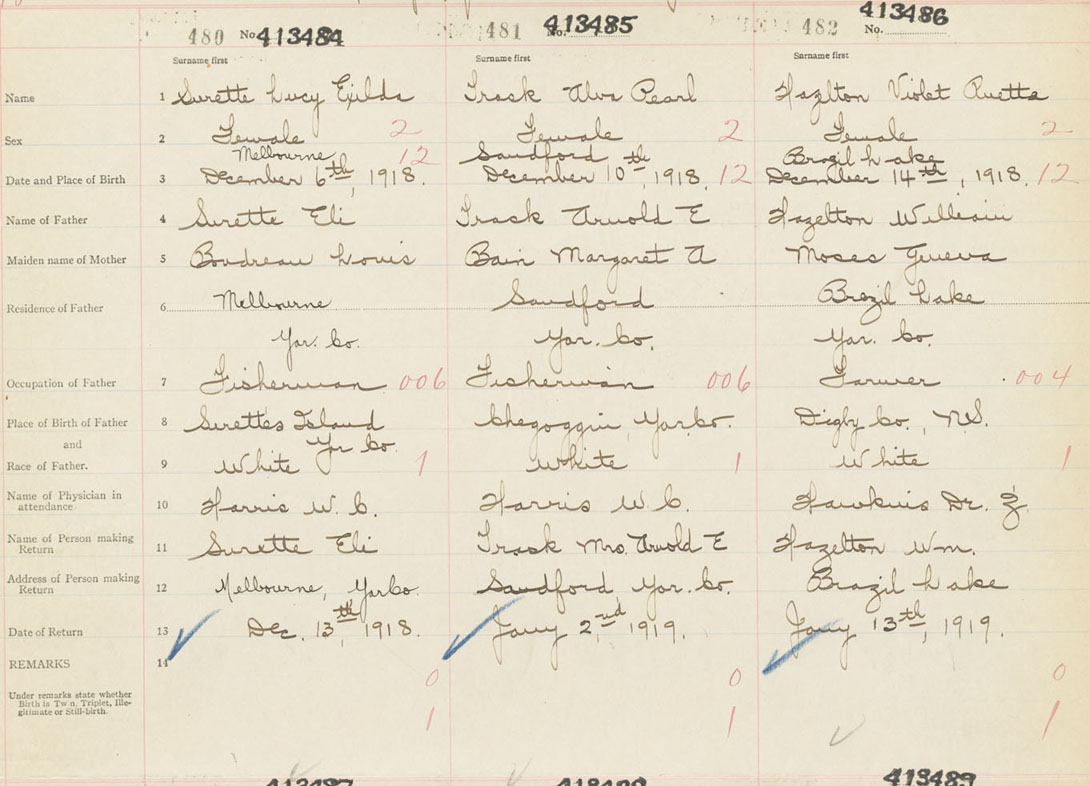 480 No. 413484 481 No. 413485 482 No. 413486
Surname first Surname first Surname first
Name 1 Surette Lucy Exilda Trask Alva Pearl Hazelton Violet Ruetta
Sex 2 Female 2 Female 2 Female 2
Melbourne 12 Sandford Brazil Lake
Date and Place of Birth 3 December 6th, 1918. December 10th, 1918. 12 December 14th, 1918. 12
Name of Father 4 Surette Eli Trask Arnold E Hazelton William
Maiden name of Mother 5 Boudreau Louis Bain Margaret A Moses Geneva
Residence of Father 6 Melbourne Sandford Brazil Lake
Yar. Co. Yar. Co. Yar. Co.
Occupation of Father 7 Fisherman 006 Fisherman 006 Farmer 004
Place of Birth of Father 8 Surettes Island Chegoggin, Yar. Co. Digby Co., N.S.
and Yar Co.
Race of Father. 9 White 1 White 1 White 1
Name of Physician in attendance 10 Harris W. C. Harris W. C. Hawkins Dr. Z
Name of Person making Return 11 Surette Eli Trask Mrs. Arnold E Hazelton Wm.
Address of Person making Return 12 Melbourne, Yar Co. Sandford Yar. Co. Brazil Lake
Date of Return 13 Dec. 13th, 1918. Jany 2nd, 1919. Jany 13th, 1919.
REMARKS 14
0 0 0
Under remarks state whether
Birth is Twin, Triplet, Ille-
gitimate or Still-birth.
1 1 1
413487 413489